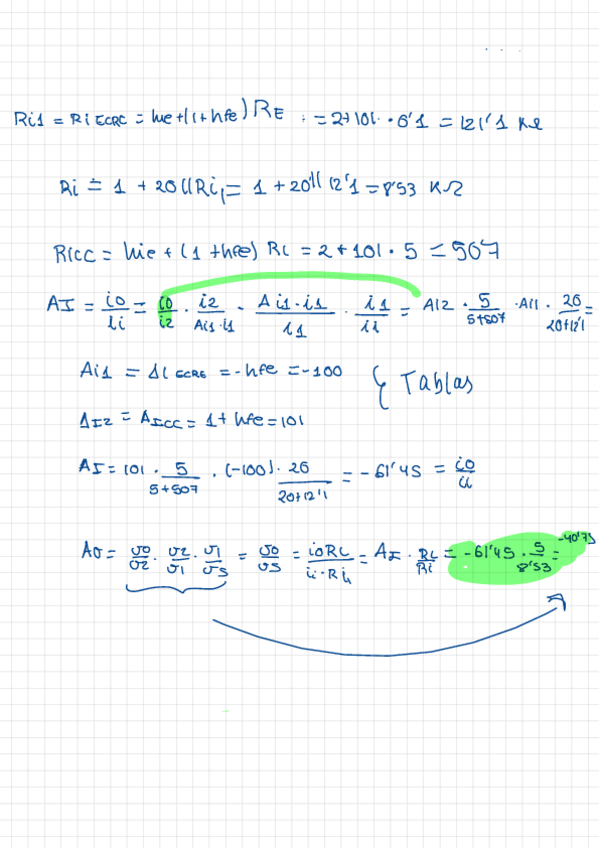 Ri1 = Ri ECRC = hie+(1+hfe) RE := 2+101·0'1 = 12'1 KΩ
Ri = 1 + 20 || Ri1 = 1 + 20 || 12'1 = 8'53 KΩ
RiCC = hie + (1 + hfe) RL = 2 + 101 · 5 = 507
AI = io/ii = io/i2 · i2/Ai1·i1 · Ai1·i1/i1 · i1/ii = AI2 · 5/5+507 · AI1 · 20/20+12'1 =
Ai1 = AI ECRE = -hfe = -100 { Tablas
AI2 = AICC = 1 + hfe = 101
AI = 101 · 5/5+507 · (-100) · 20/20+12'1 = -61'45 = io/ii
Av = vo/v2 · v2/v1 · v1/vs = vo/vs = ioRL/ii·Ri = AI · RL/Ri = -61'45 · 5/8'53 =